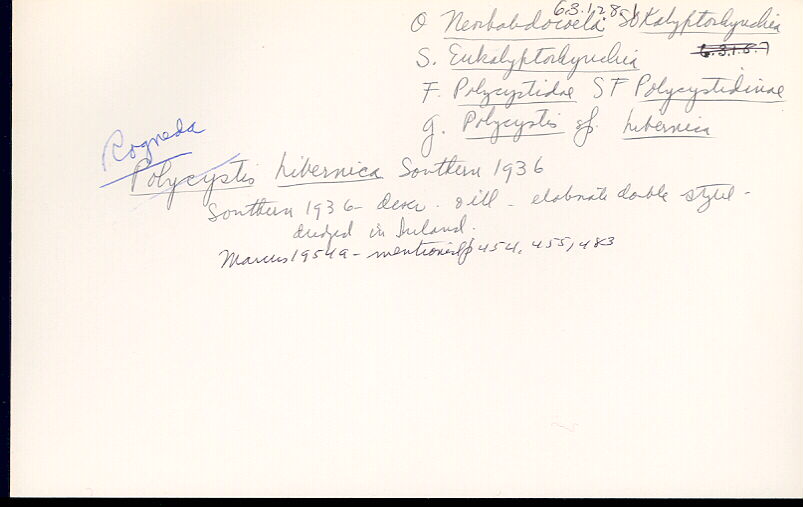 6.3.1.2.8.1
O Neorhabdocoela SO Kalyptorhynchia
S. Eukalyptorhynchia 6.3.1.5.7
F. Polycystidae SF Polycystidinae
g. Polycystis sp. hibernica
Rogneda
Polycystis hibernica Southern 1936
Southern 1936 - descr. & ill - elaborate double stylet -
dredged in Ireland.
Marcus 1954a - mentioned p 454, 455, 483